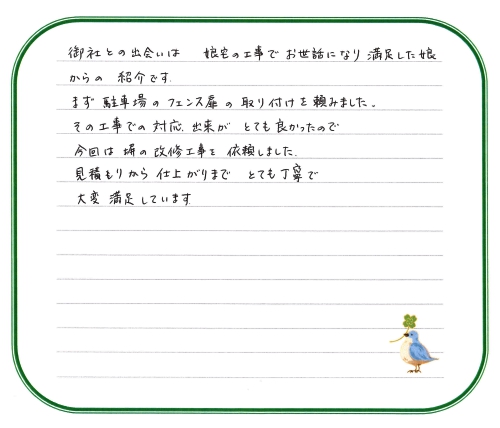 御社との出会いは 娘宅の工事でお世話になり満足した娘
からの 紹介です.
まず駐車場のフェンス扉の取り付けを頼みました。
その工事での対応.出来が とても良かったので
今回は塀の改修工事を依頼しました.
見積もりから仕上がりまで とても丁寧で
大変満足しています